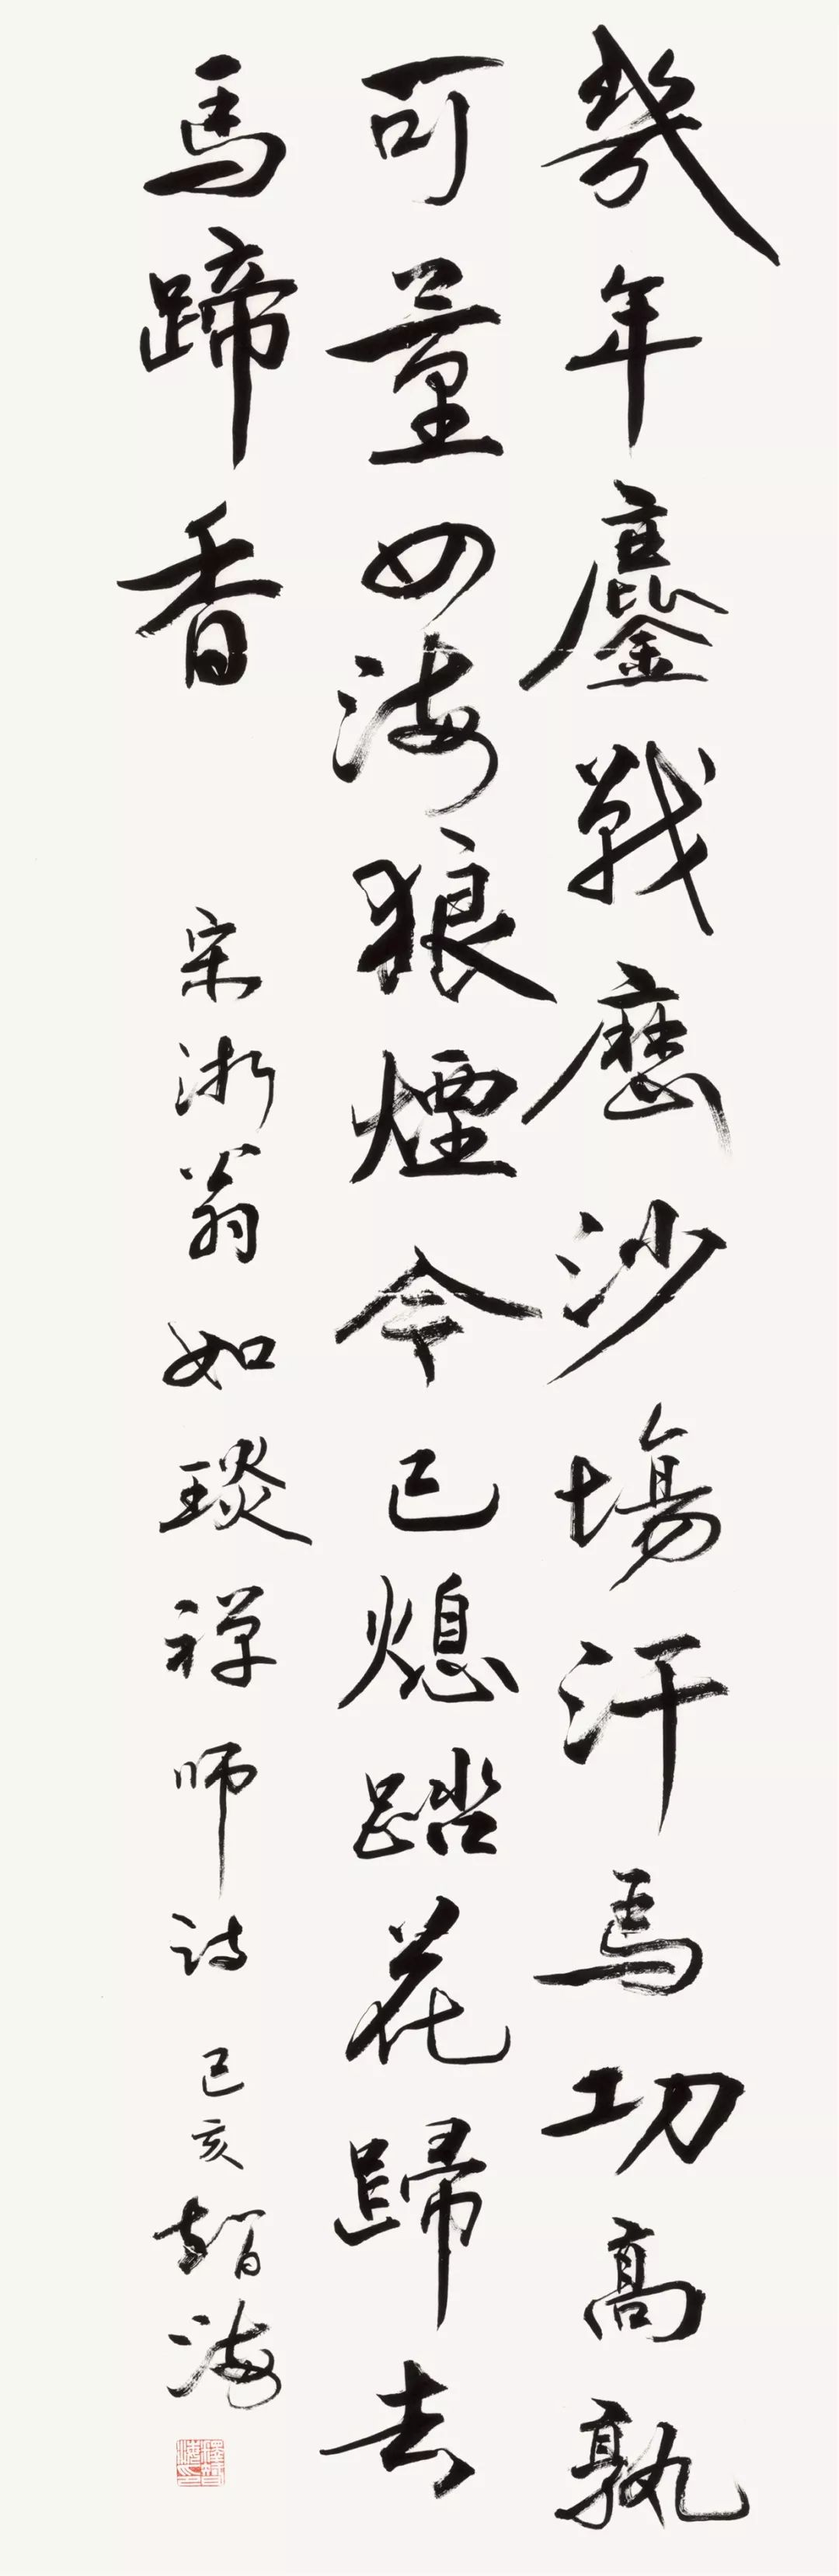 幾年鏖戰歷沙場汗馬功高孰
可量四海狼煙今已熄踏花歸去
馬蹄香
宋浙翁如琰禪师诗 己亥 智海